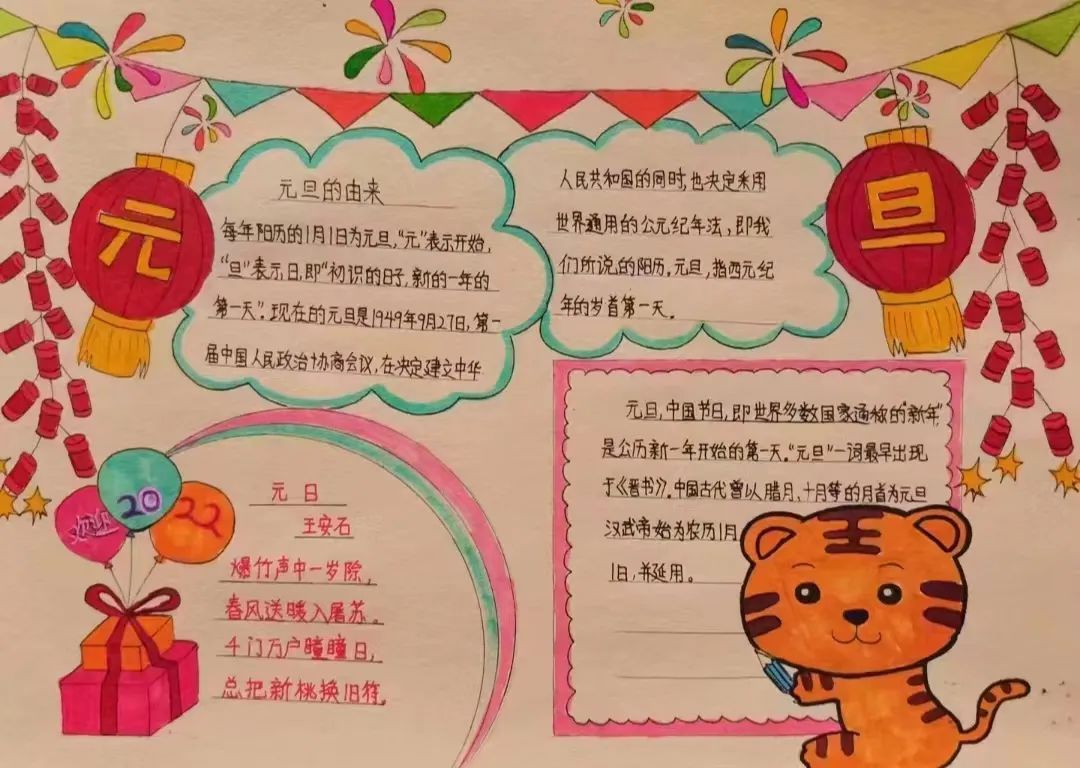 元
旦
元旦的由来
每年阳历的1月1日为元旦,“元”表示开始,
“旦”表示日,即“初识的日子,新的一年的
第一天”.现在的元旦是1949年9月27日,第一
届中国人民政治协商会议,在决定建立中华
人民共和国的同时,也决定采用
世界通用的公元纪年法,即我
们所说的阳历。元旦,指西元纪
年的岁首第一天。
元旦,中国节日,即世界多数国家通称的“新年”,
是公历新一年开始的第一天。“元旦”一词最早出现
于《晋书》。中国古代曾以腊月、十月等的月首为元旦
汉武帝始为农历1月
1日,并延用。
欢迎
2022
元日
王安石
爆竹声中一岁除,
春风送暖入屠苏。
千门万户瞳瞳日,
总把新桃换旧符。
王